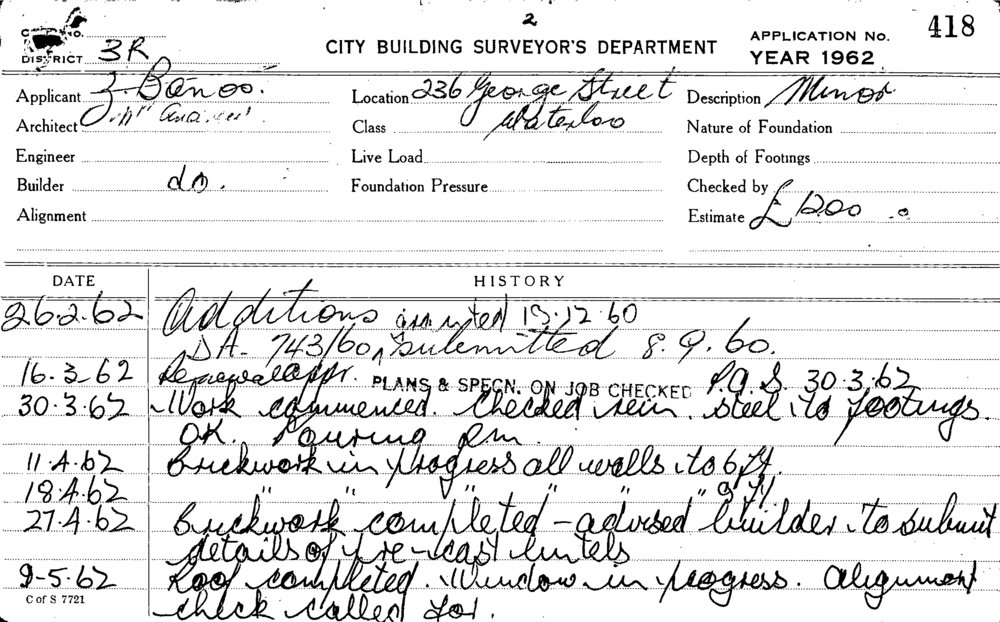 2
418
CITY BUILDING SURVEYOR'S DEPARTMENT
APPLICATION No.
YEAR 1962
DISTRICT 3R
Applicant J. Banos.
Location 236 George Street
Waterloo
Description Minor
Architect
Class
Nature of Foundation
Engineer
Live Load
Depth of Footings
Builder do.
Foundation Pressure
Checked by
Alignment
Estimate £1200
DATE
HISTORY
26.2.62 Additions granted 19.12.60
DA. 743/60, submitted 8.9.60.
16.3.62 Renewal appr. PLANS & SPECN. ON JOB CHECKED P.G.S. 30.3.62
30.3.62 Work commenced. Checked rein. steel to footings.
OK. Pouring pm.
11.4.62 Brickwork in progress all walls to 6 ft.
18.4.62 " " " " " 9 ft
27.4.62 Brickwork completed - advised builder to submit
details of pre-cast lintels
9-5.62 Roof completed. Window in progress. Alignment
check called for.
C of S 7721